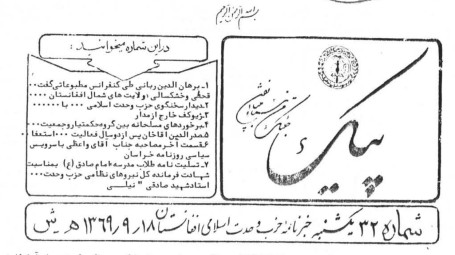 بسم الله الرحمن الرحیم
دراین شماره میخوانید :
۱ـ برهان الدین ربانی طی کنفرانس مطبوعاتی گفت ۰۰۰
قحطی وخشکسالی ، ولایت های شمال افغانستان ۰۰۰۰
۲ـ دیدار سخنگوی حزب وحدت اسلامی ۰۰۰ با ۰۰۰۰۰۰
۳ـ زیوکف خارج ازمدار
۴ـ برخوردهای مسلحانه بین گروه حکمتیار وجمعیت ۰۰۰
۵ـ صدرالدین آقاخان پس ازدوسال فعالیت ۰۰۰ استعفا ۰۰
۶ـ قسمت آخر مصاحبه جناب آقای واعظی باسرویس
سیاسی روزنامه خراسان
۷ـ تسلیت نامه طلاب مدرسه امام صادق (ع) بمناسبت
شهادت فرمانده کل نیروهای نظامی حزب وحدت ۰۰۰۰
استاد شهید صادقی " نیلی
پیک
شماره ۳۲ یکشنبه خبرنامهٔ حزب وحدت اسلامی افغانستان ۱۸ ر ۹ ر ۱۳۶۹ هـ ش